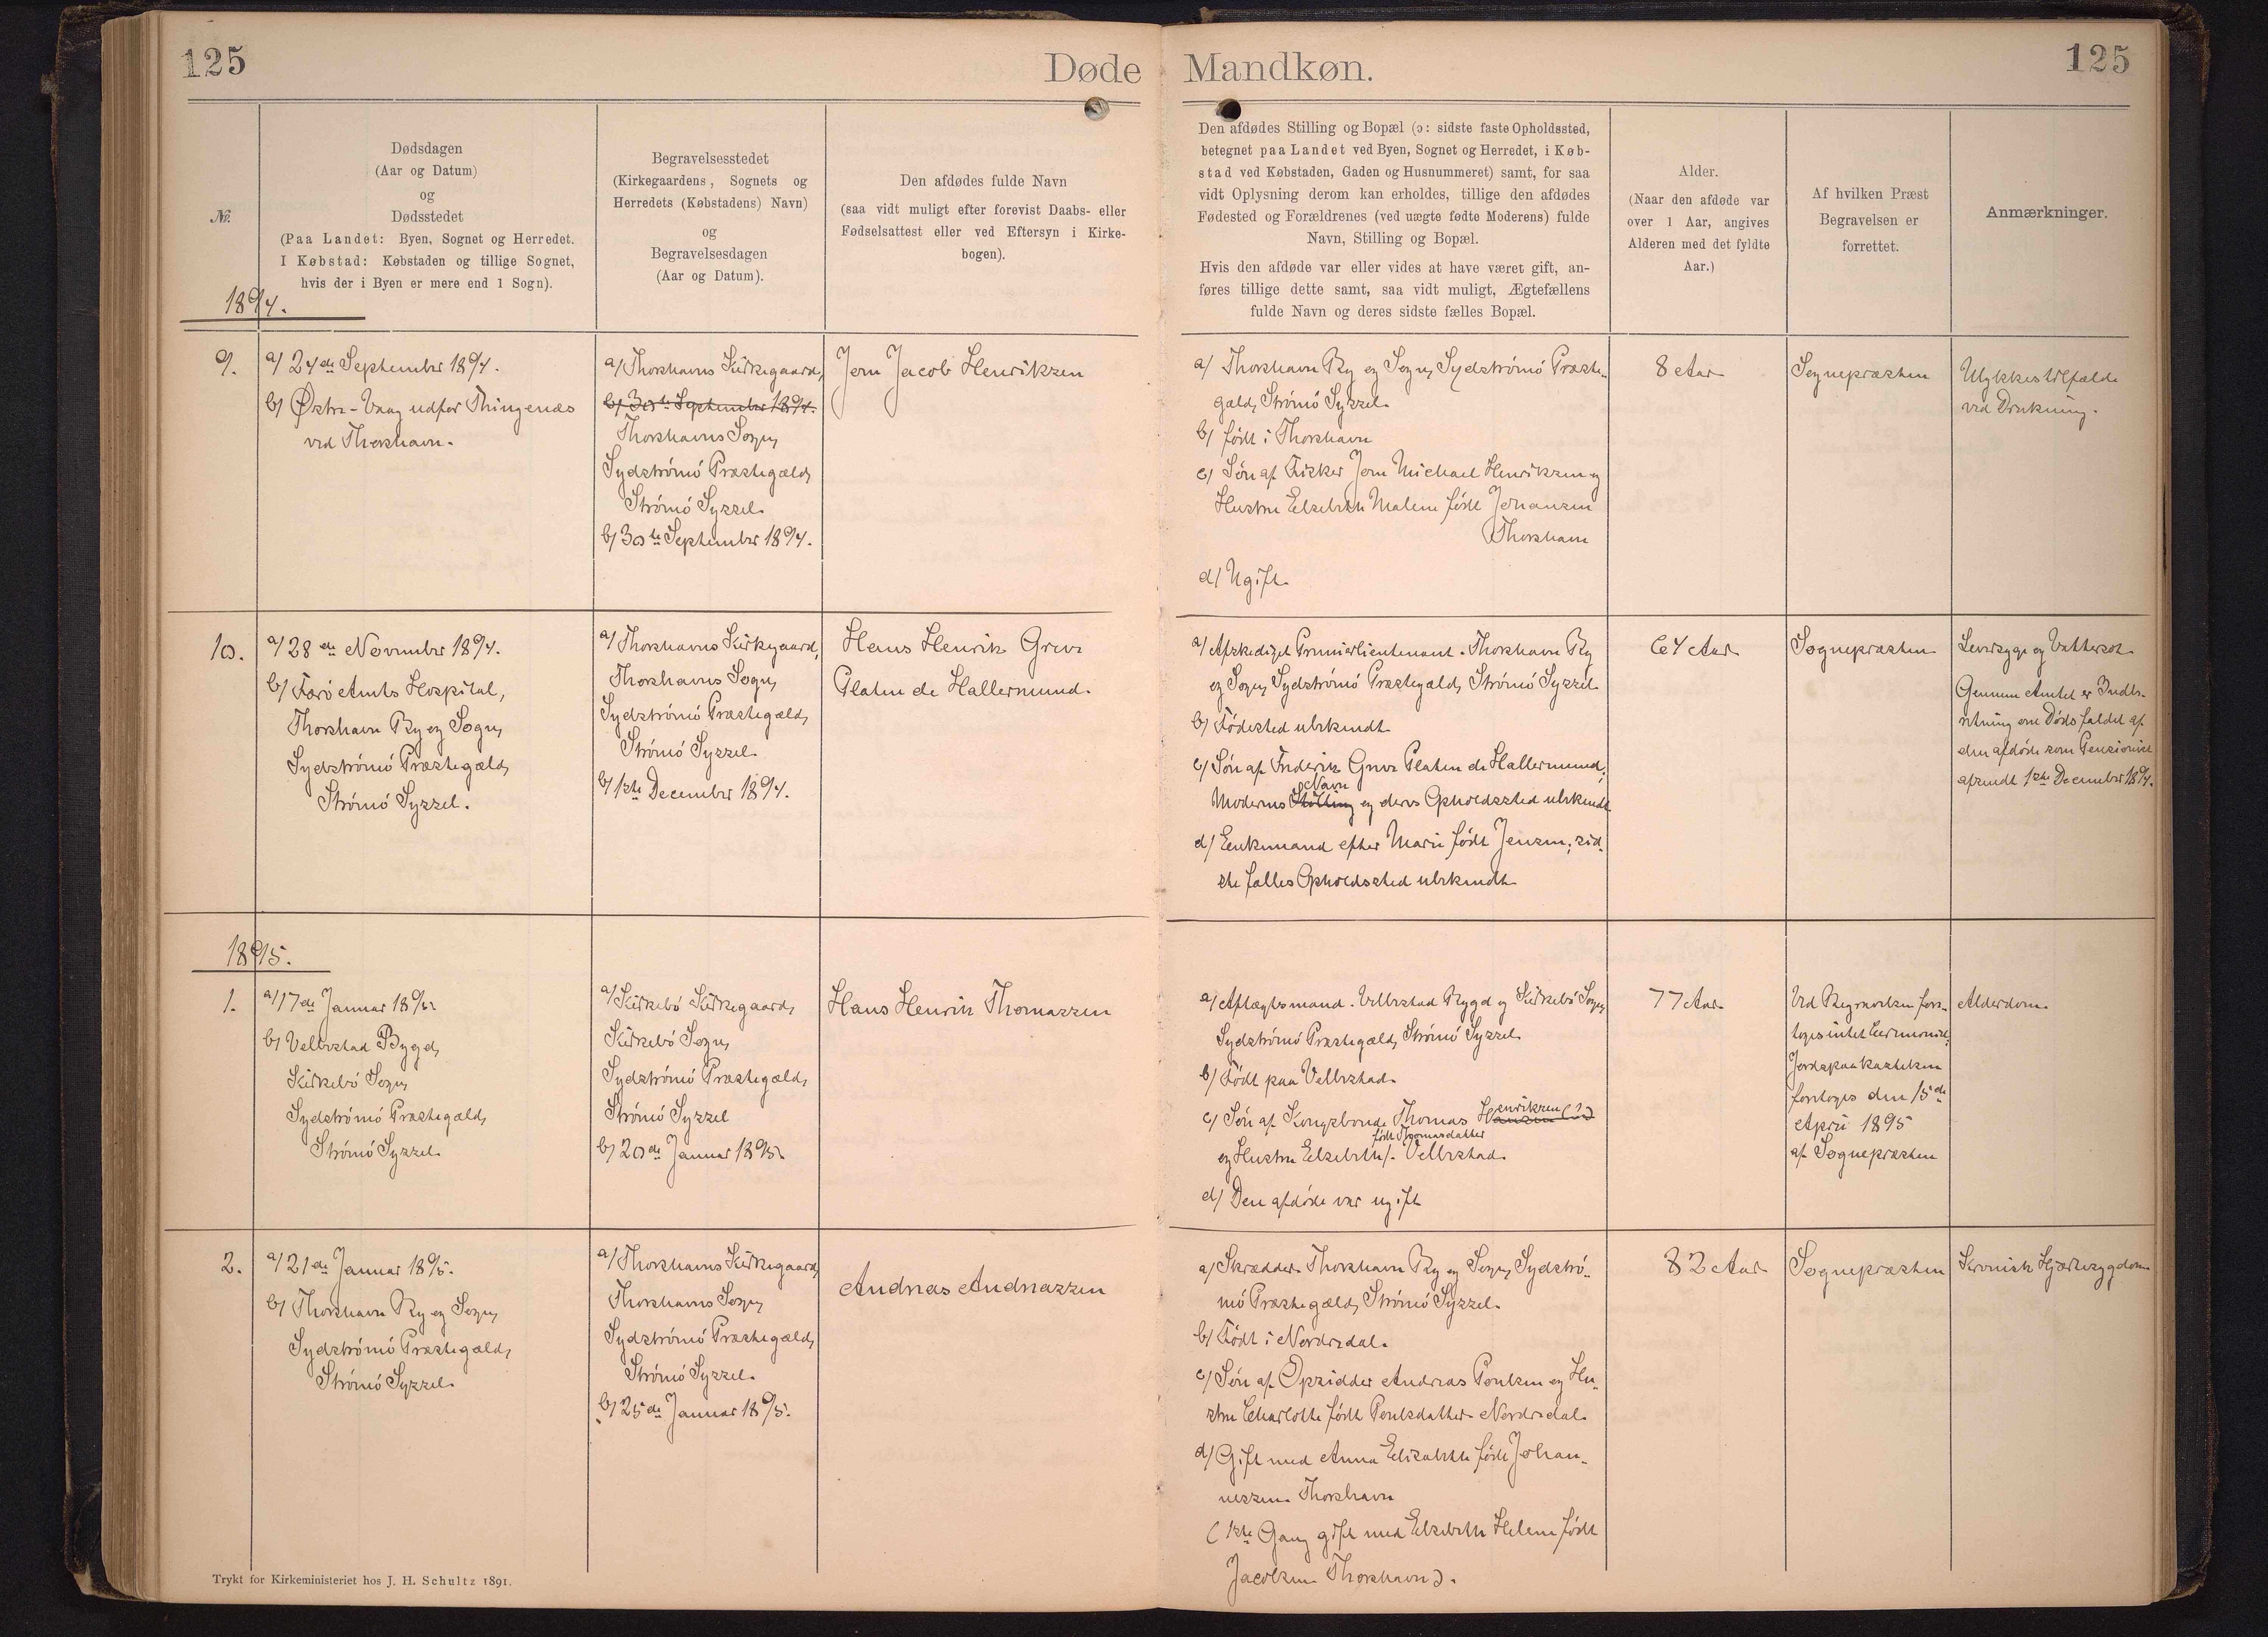 125
Døde
Mandkøn.
125
№.
Dødsdagen
(Aar og Datum)
og
Dødsstedet
(Paa Landet: Byen, Sognet og Herredet.
I Købstad: Købstaden og tillige Sognet,
hvis der i Byen er mere end 1 Sogn).
Begravelsesstedet
(Kirkegaardens, Sognets og
Herredets (Købstadens) Navn)
og
Begravelsesdagen
(Aar og Datum).
Den afdødes fulde Navn
(saa vidt muligt efter forevist Daabs- eller
Fødselsattest eller ved Eftersyn i Kirke-
bogen).
Den afdødes Stilling og Bopæl (ɔ: sidste faste Opholdssted,
betegnet paa Landet ved Byen, Sognet og Herredet, i Køb-
stad ved Købstaden, Gaden og Husnummeret) samt, for saa
vidt Oplysning derom kan erholdes, tillige den afdødes
Fødested og Forældrenes (ved uægte fødte Moderens) fulde
Navn, Stilling og Bopæl.
Hvis den afdøde var eller vides at have været gift, an-
føres tillige dette samt, saa vidt muligt, Ægtefællens
fulde Navn og deres sidste fælles Bopæl.
Alder.
(Naar den afdøde var
over 1 Aar, angives
Alderen med det fyldte
Aar.)
Af hvilken Præst
Begravelsen er
forrettet.
Anmærkninger.
1894.
9.
a/ 24de September 1894.
b/ Østre-Vaag udfor Thingenæs
ved Thorshavn.
a/ Thorshavns Kirkegaard,
b/ 30te September 1894.
Thorshavns Sogn,
Sydstrømø Præstegæld,
Strømø Syssel.
b/ 30te September 1894.
Jorn Jacob Henriksen
a/ Thorshavn By og Sogn, Sydstrømø Præste-
gæld, Strømø Syssel.
b/ født i Thorshavn
c/ Søn af Fisker Jorn Michael Henriksen og
Hustru Elsebeth Malene født Johansen
Thorshavn
d/ Ugift.
8 Aar
Sognepræsten
Ulykkestilfælde
ved Drukning.
10.
a/ 28de November 1894.
b/ Færø Amts Hospital,
Thorshavn By og Sogn,
Sydstrømø Præstegæld,
Strømø Syssel.
a/ Thorshavns Kirkegaard,
Thorshavns Sogn,
Sydstrømø Præstegæld,
Strømø Syssel.
b/ 1ste December 1894.
Hans Henrik Greve
Platen de Hallermund.
a/ Afskediget Premierlieutenant. Thorshavn By
og Sogn, Sydstrømø Præstegæld, Strømø Syssel.
b/ Fødested ubekendt.
c/ Søn af Frederik Greve Platen de Hallermund;
Navn
Moderens Stilling og deres Opholdssted ubekendt
d/ Enkemand efter Marie født Jensen; sid-
ste fælles Opholdssted ubekendt.
64 Aar
Sognepræsten
Leversyge og Vattersot.
Gennem Amtet er Indbe-
retning om Dødsfaldet af
den afdøde som Pensionist
afsendt 1ste December 1894.
1895.
1.
a/ 17de Januar 1895.
b/ Velbestad Bygd,
Kirkebø Sogn,
Sydstrømø Præstegæld,
Strømø Syssel.
a/ Kirkebø Kirkegaard,
Kirkebø Sogn,
Sydstrømø Præstegæld,
Strømø Syssel
b/ 20de Januar 1895.
Hans Henrik Thomassen
a/ Aftægtsmand. Velbestad Bygd og Kirkebø Sogn,
Sydstrømø Præstegæld, Strømø Syssel.
b/ Født paa Velbestad.
enriksen (?)
c/ Søn af Kongsbonde Thomas Hansen
født Thomasdatter
og Hustru Elsebeth/. Velbestad.
d/ Den afdøde var ugift
77 Aar
Ved Begravelsen fore-
toges intet Ceremoniel;
Jordspaakastelsen
foretoges den 15de
April 1895
af Sognepræsten
Alderdom.
2.
a/ 21de Januar 1895.
b/ Thorshavn By og Sogn,
Sydstrømø Præstegæld,
Strømø Syssel.
a/ Thorshavns Kirkegaard,
Thorshavns Sogn,
Sydstrømø Præstegæld,
Strømø Syssel.
b/ 25de Januar 1895.
Andreas Andreassen
a/ Skrædder. Thorshavn By og Sogn, Sydstrø-
mø Præstegæld, Strømø Syssel.
b/ Født i Nordredal.
c/ Søn af Opsidder Andreas Poulsen og Hu-
stru Charlotte født Poulsdatter. Nordredal.
d/ Gift med Anna Elisabeth født Johan-
nessen. Thorshavn
(1ste Gang gift med Elsebeth Helene født
Jacobsen. Thorshavn).
82 Aar
Sognepræsten
Kronisk Hjertesygdom
Trykt for Kirkeministeriet hos J. H. Schultz 1891.